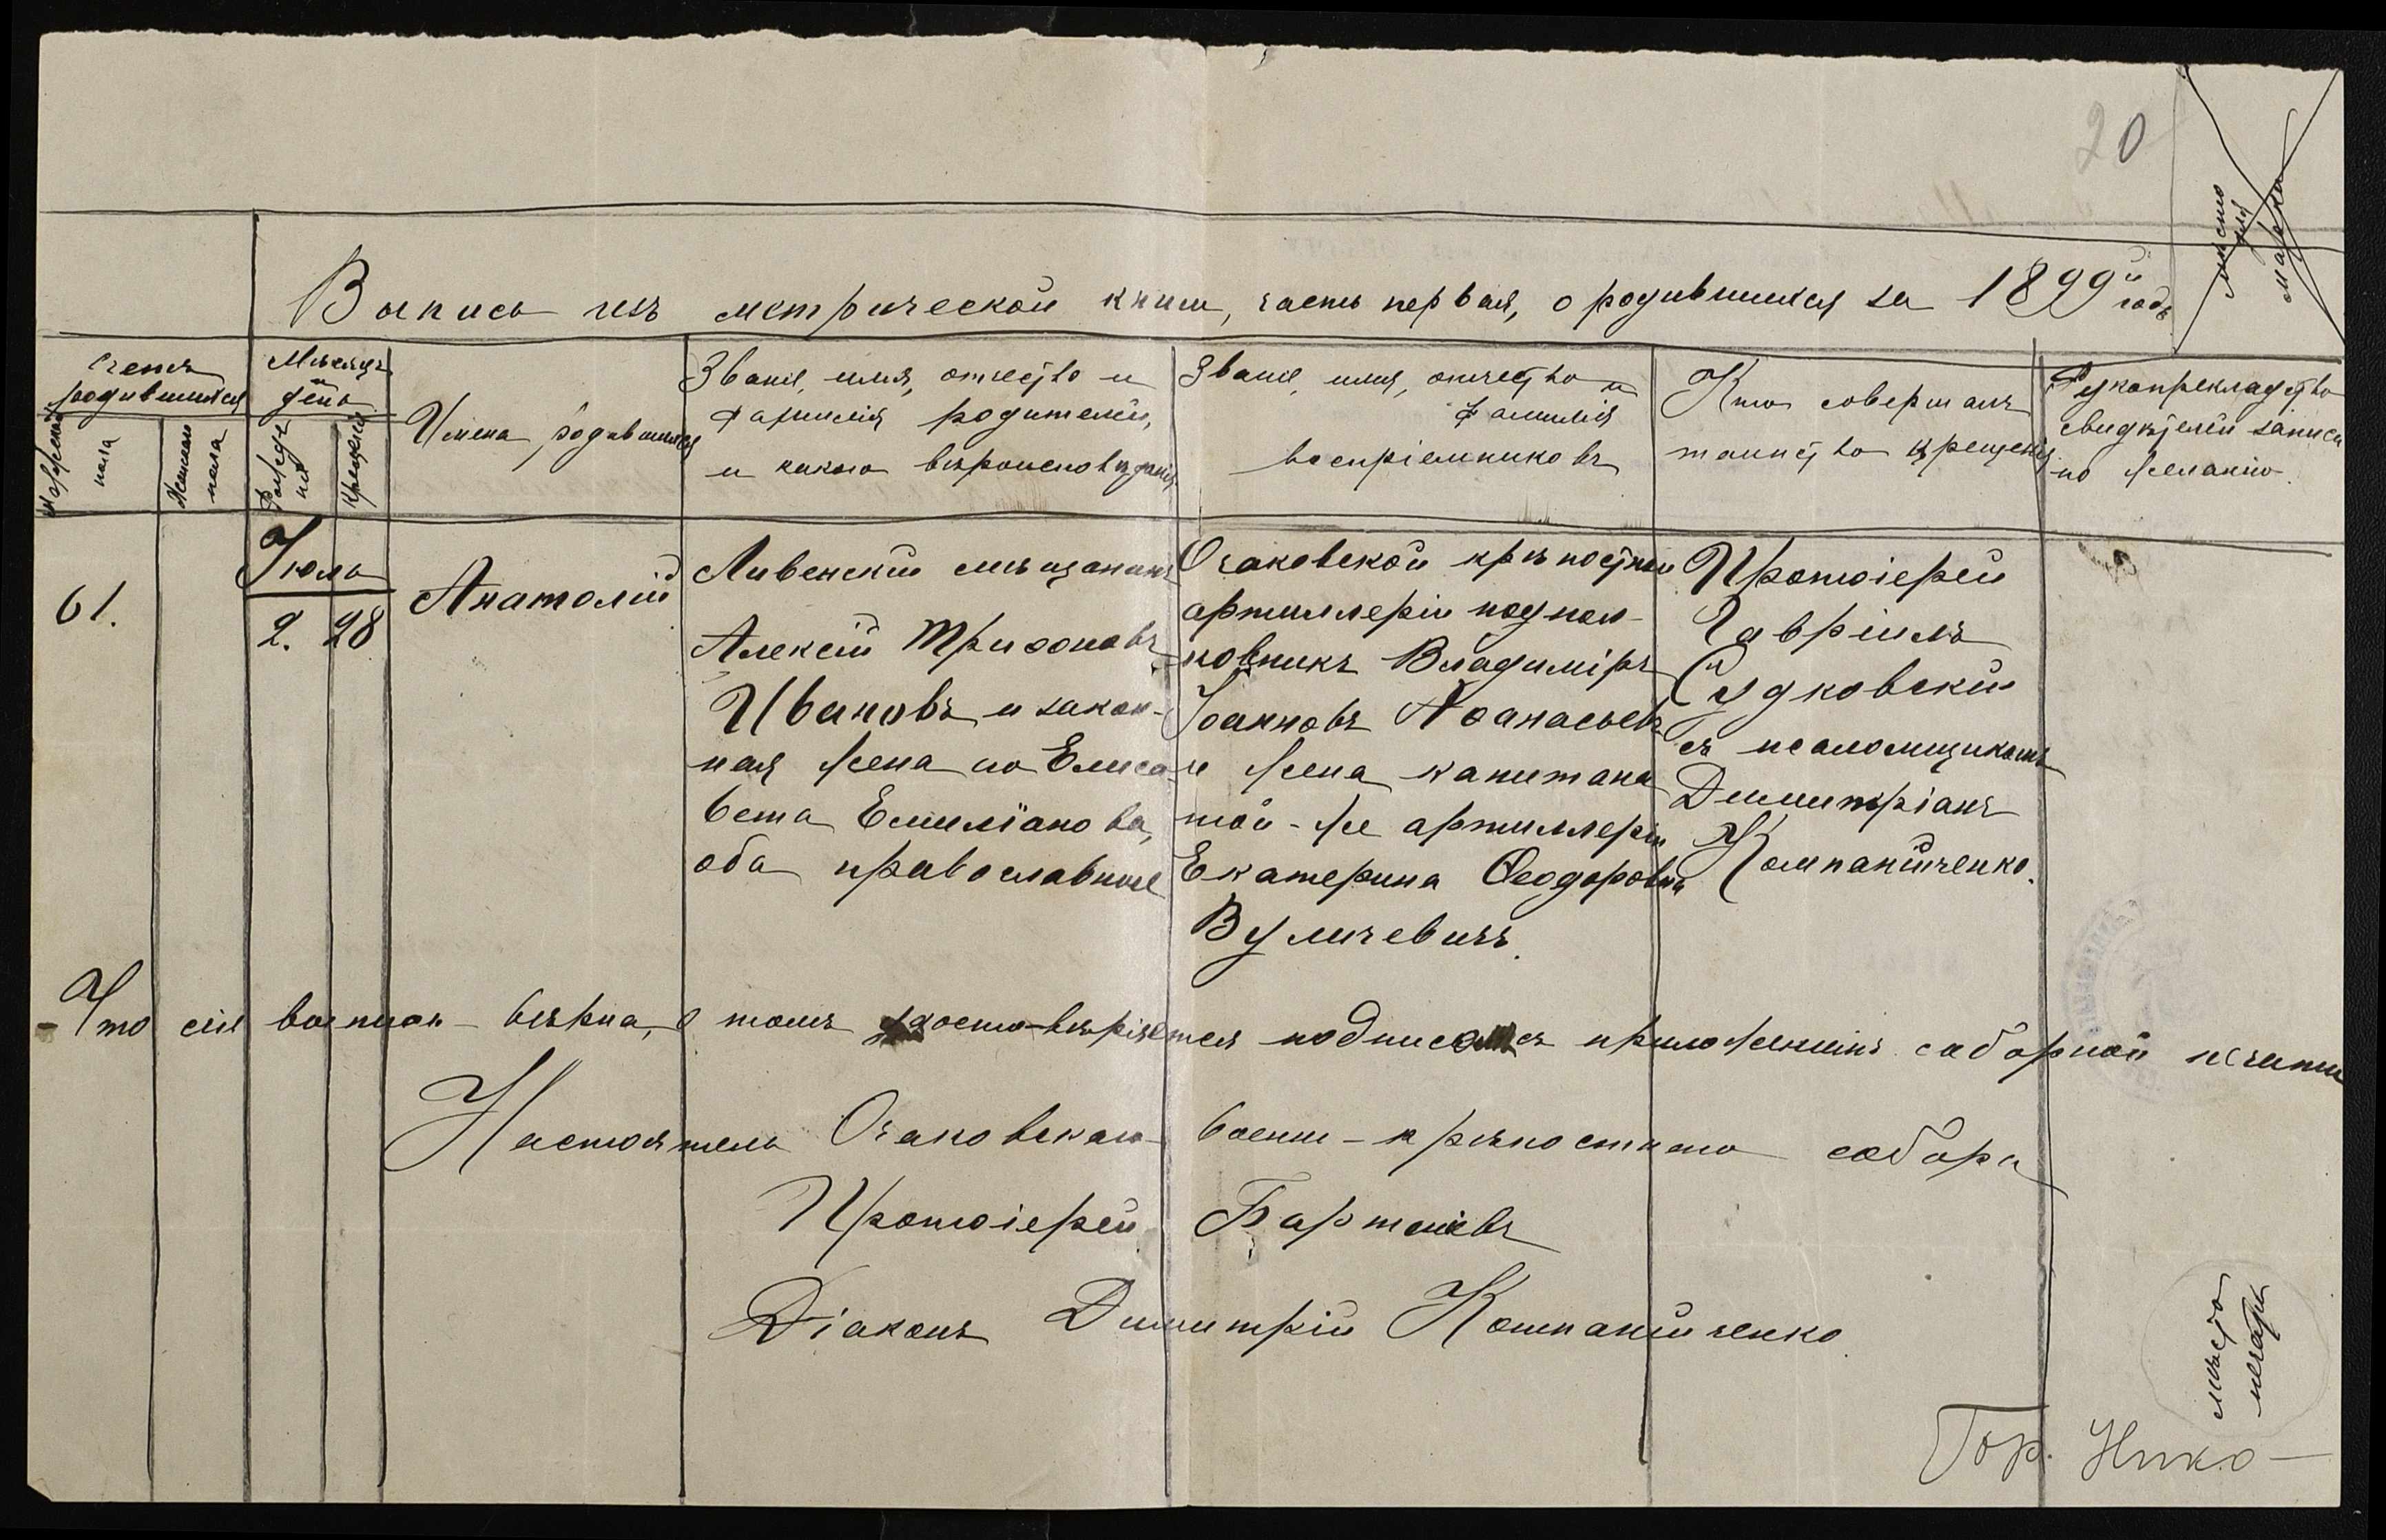 20
Место
для
марки
Выпись изъ метрической книги, часть первая, о родившихся за 1899й годъ
Счетъ
родившихся
Мужеска
пола
Женска
пола
Мѣсяцъ
и день
Рожде
нія
Крещенія
Имена родившихся
Званіе, имя, отчество и
фамилія родителей,
и какого вѣроисповѣданія
Званіе, имя, отчество и
фамилія
воспріемниковъ
Кто совершалъ
таинство крещенія
Рукоприкладство
свидѣтелей записи
по желанію.
61.
Іюль
2. 28
Анатолій
Ливенскій мѣщанинъ
Алексій Трифоновъ
Ивановъ и закон-
ная жена его Елиса-
вета Емиліанова,
оба православные
Очаковской крѣпостной
артиллеріи подпол-
ковникъ Владиміръ
Іоанновъ Аѳанасьевъ
и жена капитана
той-же артиллеріи
Екатерина Ѳеодоровна
Вуличевичъ.
Протоіерей
Гавріилъ
Судковскій
съ псаломщикомъ
Димитріемъ
Компанійченко.
Что сія выпись вѣрна, о томъ удостовѣряется подписомъ съ приложеніемъ соборной печати
Настоятель Очаковскаго военно-крѣпостного собора
Протоіерей Бартеневъ
Діаконъ Димитрій Компанійченко.
Мѣсто
печати
Гор. Нико-